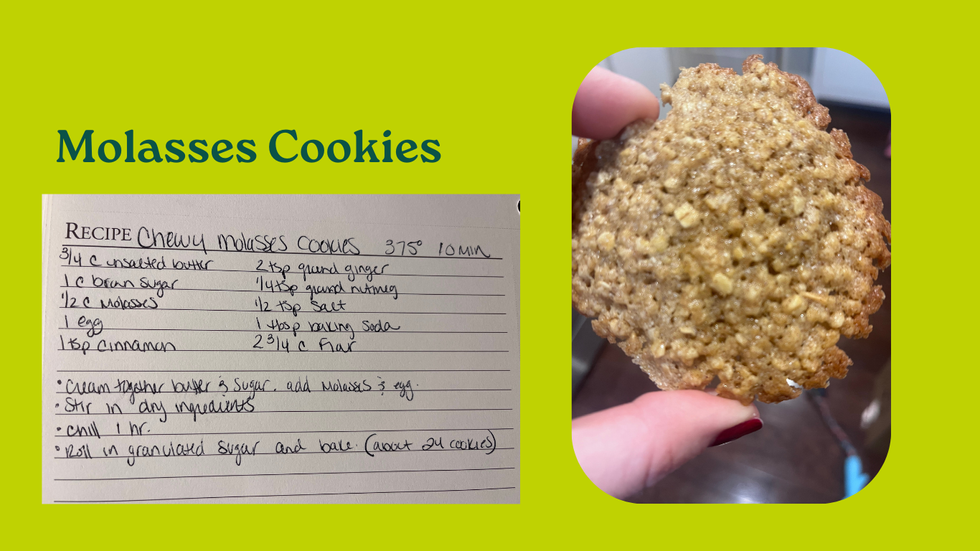 Molasses Cookies
RECIPE Chewy molasses cookies 375° 10 min
3/4 c unsalted butter 2 tsp ground ginger
1 c brown sugar 1/4 tsp ground nutmeg
1/2 c Molasses 1/2 tsp Salt
1 egg 1 tbsp baking Soda
1 tsp cinnamon 2 3/4 c Flour
• Cream together butter & Sugar. add Molasses & egg.
• Stir in dry ingredients
• Chill 1 hr.
• Roll in granulated sugar and bake. (about 24 cookies)